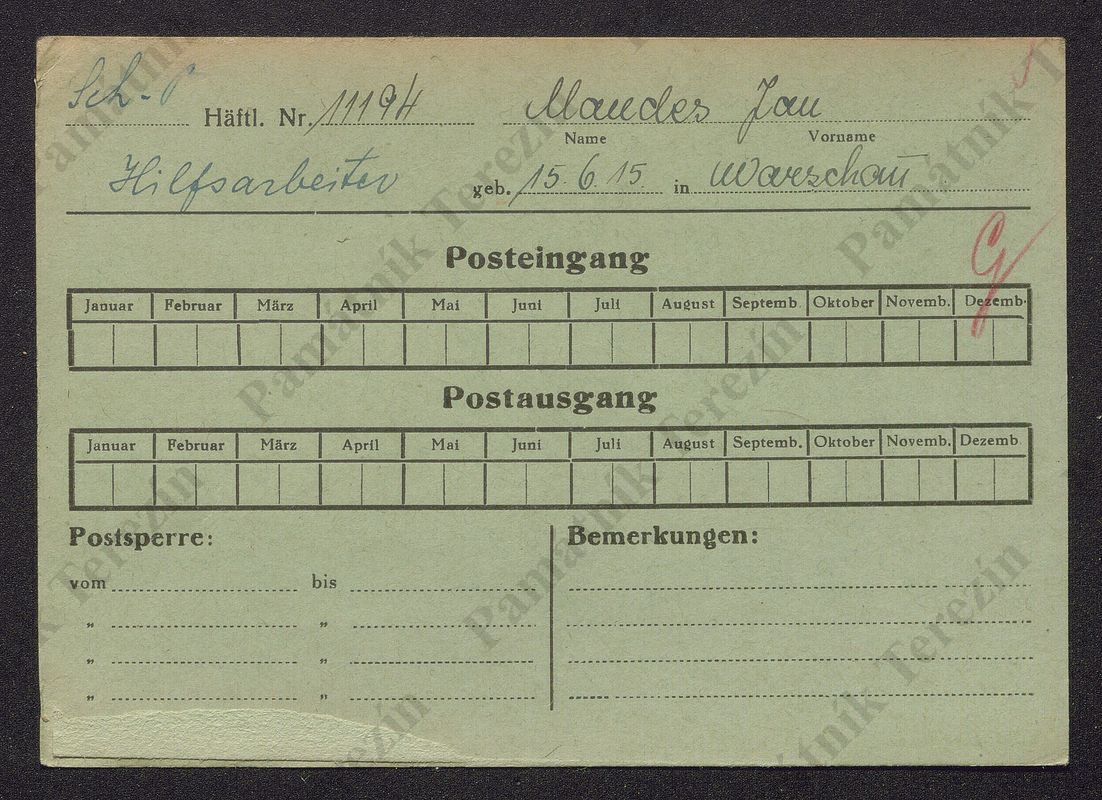 Sch-P Häftl. Nr. 11194 Mandes Jan
Name Vorname
Hilfsarbeiter geb. 15.6.15 in Warschau
G
Posteingang
Januar Februar März April Mai Juni Juli August Septemb. Oktober Novemb. Dezemb.
Postausgang
Januar Februar März April Mai Juni Juli August Septemb. Oktober Novemb. Dezemb.
Postsperre: Bemerkungen:
vom bis
„ „
„ „
„ „
Památník Terezín